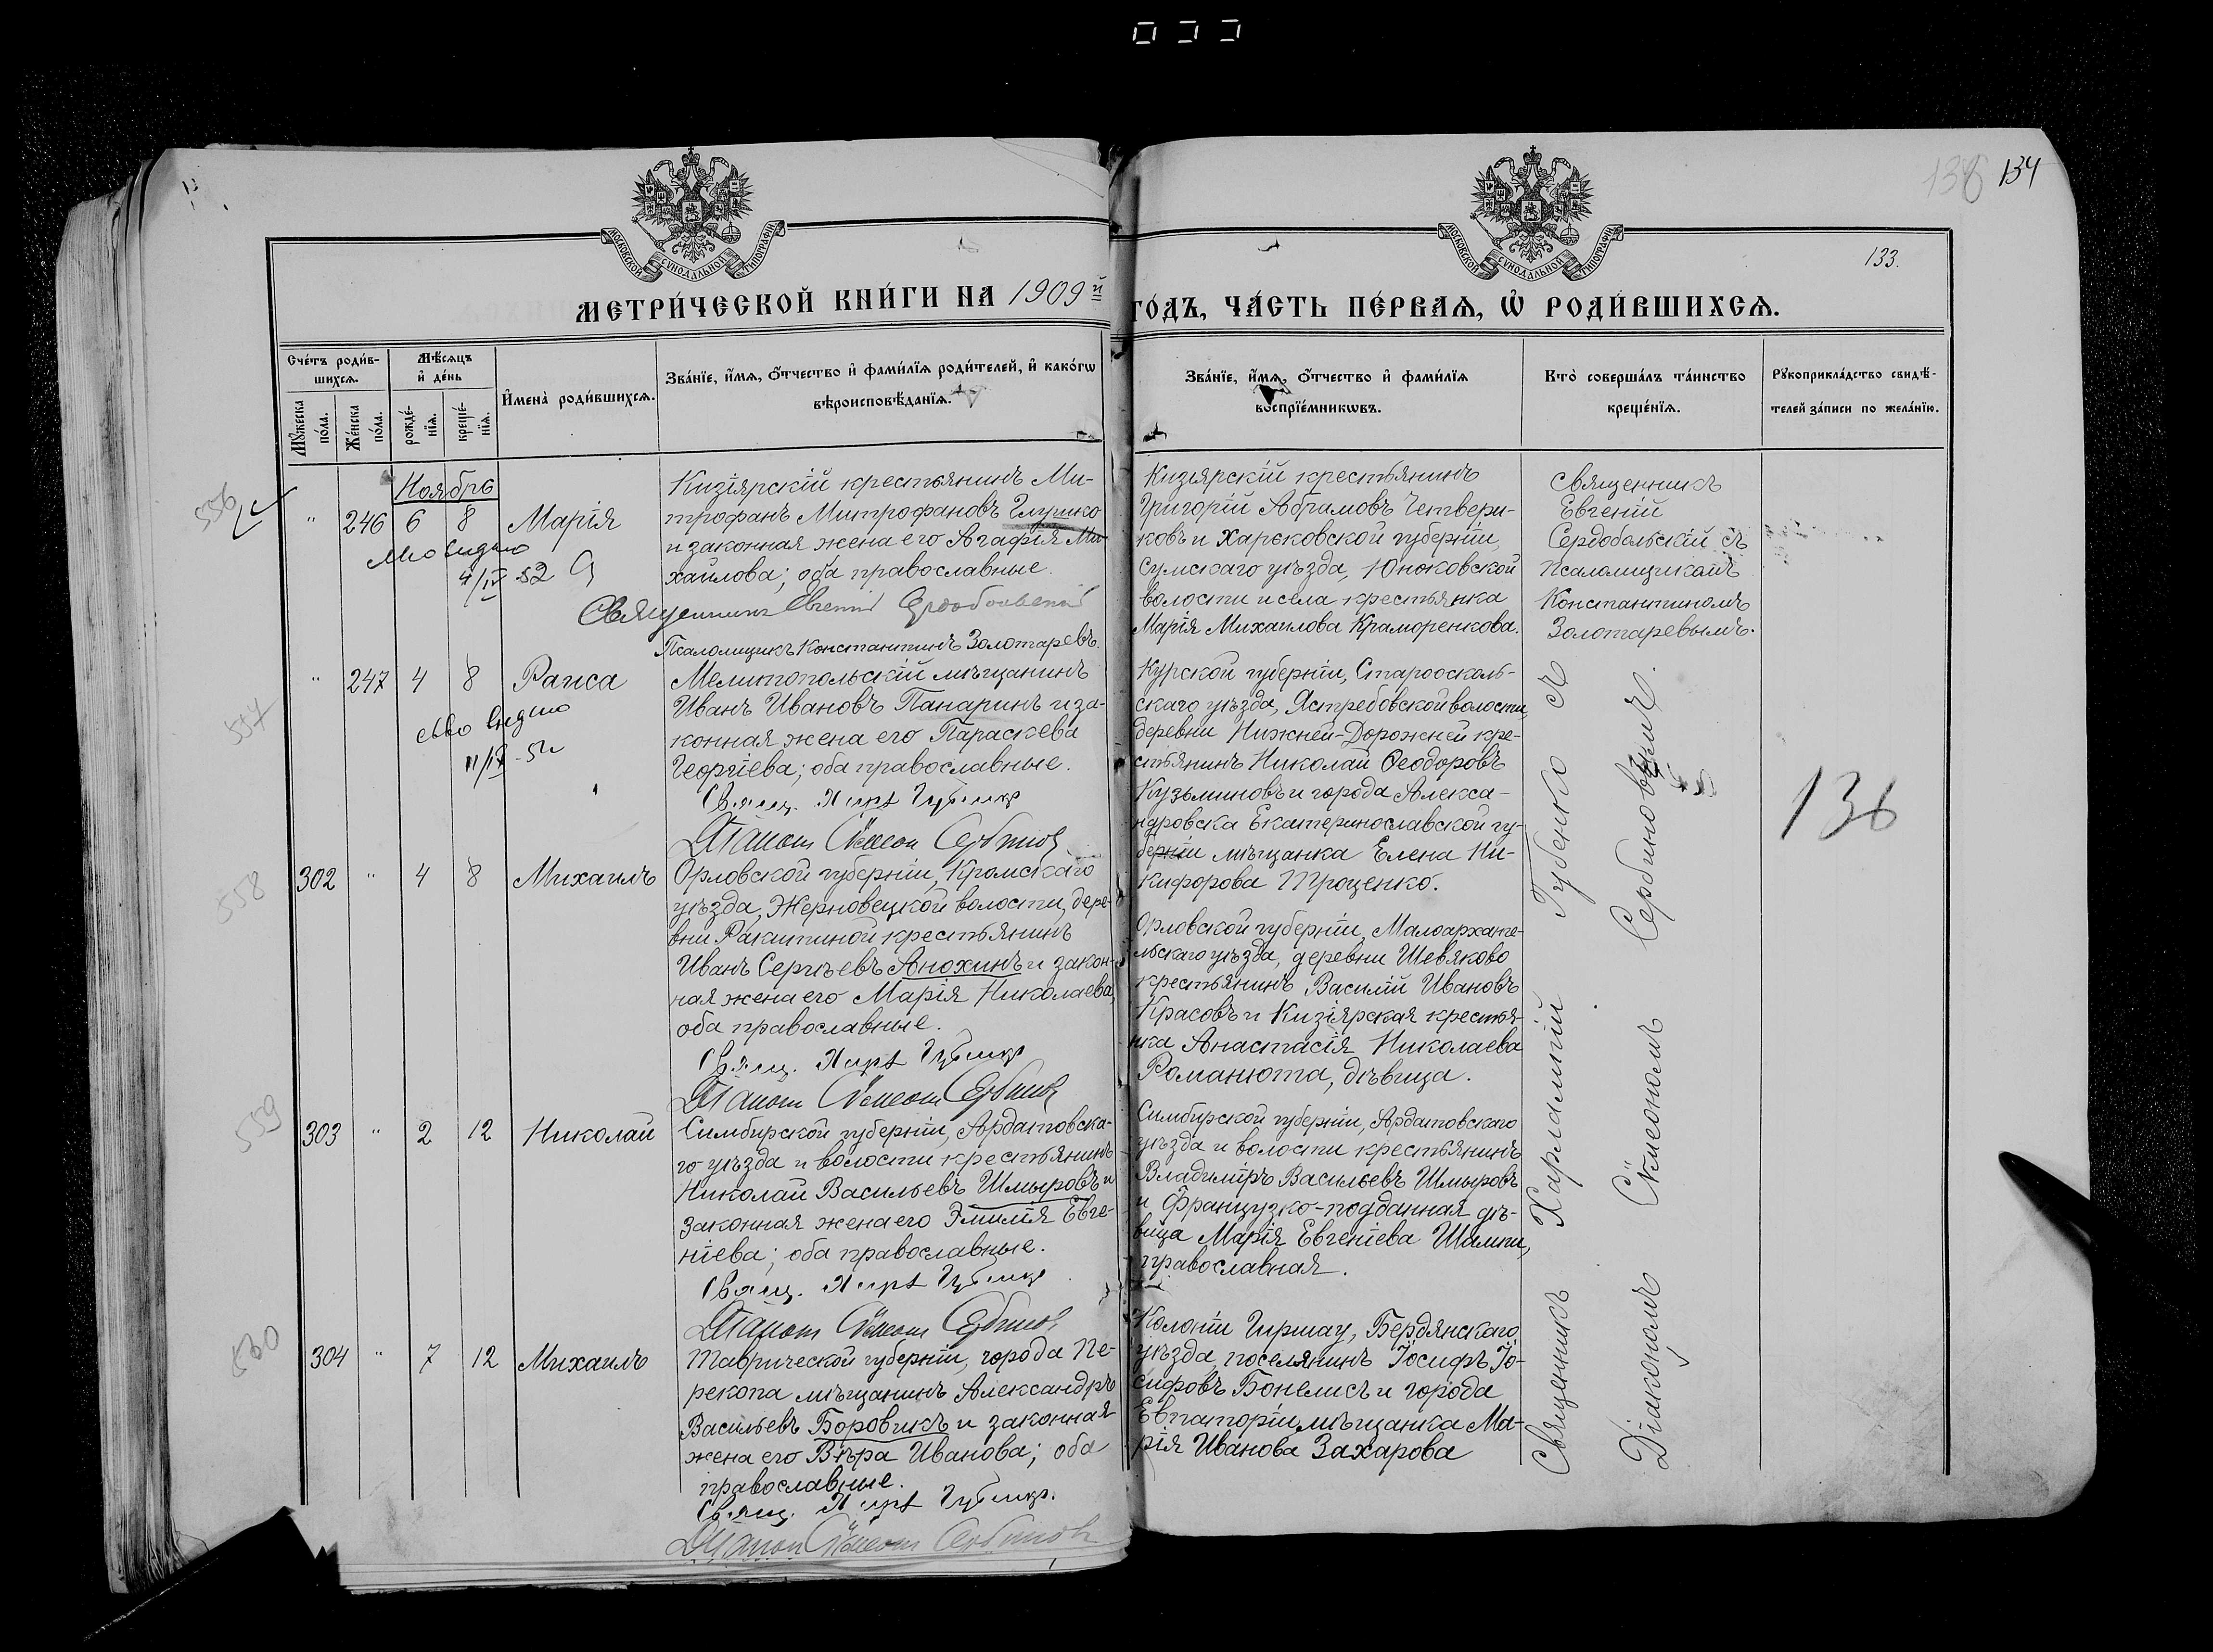 138 134
133.
МОСКОВСКОЙ СѴНОДАЛЬНОЙ ТИПОГРАФІИ
МОСКОВСКОЙ СѴНОДАЛЬНОЙ ТИПОГРАФІИ
МЕТРИ́ЧЕСКОЙ КНИ́ГИ НА 1909й
ГО́ДЪ, ЧА́СТЬ ПЕ́РВАѦ, Ѽ РОДИ́ВШИХСѦ.
Сче́тъ роди́в-
шихсѧ.
Мꙋ́жеска
по́ла.
Же́нска
по́ла.
Мѣ́сѧцъ
и҆ де́нь
рожде́-
нїѧ.
креще́-
нїѧ.
И҆мена̀ роди́вшихсѧ.
Зва́нїе, и҆́мѧ, ѻ҆́тчество и҆ фами́лїѧ роди́телей, и҆ како́гѡ
вѣроисповѣ́данїѧ.
Зва́нїе, и҆́мѧ, ѻ҆́тчество и҆ фами́лїѧ
воспрїе́мникѡвъ.
Кто̀ соверша́лъ та́инство
креще́нїѧ.
Рꙋкоприкла́дство свидѣ́-
телей за́писи по жела́нїю.
Ноябрь
556
" 246 6 8 Марія
4/IV 52
Кизіярскій крестьянинъ Ми-
трофанъ Митрофановъ Глушко
и законная жена его Агафія Ми-
хайлова; оба православные.
Священникъ Евгеній Сердобольскій
Псаломщикъ Константинъ Золотаревъ.
Кизіярскій крестьянинъ
Григорій Абрамовъ Четвери-
ковъ и Харьковской губерніи,
Сумскаго уѣзда, Юнаковской
волости и села крестьянка
Марія Михаилова Краморенкова.
Священникъ
Евгеній
Сердобольскій съ
псаломщикомъ
Константиномъ
Золотаревымъ.
557
" 247 4 8 Раиса
11/IV-52
Мелитопольскій мѣщанинъ
Иванъ Ивановъ Панаринъ и за-
конная жена его Параскева
Георгіева; оба православные.
Свящ. Харл. Губенко
Діаконъ Сѵмеонъ Сербиновъ
Курской губерніи, Староосколь-
скаго уѣзда, Ястребовской волости,
деревни Нижней-Дорожней кре-
стьянинъ Николай Ѳеодоровъ
Кузьминовъ и города Алекса-
ндровска Екатеринославской гу-
берніи мѣщанка Елена Ни-
кифорова Троценко.
558
302 " 4 8 Михаилъ
Орловской губерніи, Кромскаго
уѣзда, Жерновецкой волости, дере-
вни Ракитиной крестьянинъ
Иванъ Сергѣевъ Анохинъ и закон-
ная жена его Марія Николаева,
оба православные.
Свящ. Харл. Губенко
Діаконъ Сѵмеонъ Сербиновъ
Орловской губерніи, Малоарханге-
льскаго уѣзда, деревни Шевяково
крестьянинъ Василій Ивановъ
Красовъ и Кизіярская крестья-
нка Анастасія Николаева
Романюта, дѣвица.
559
303 " 2 12 Николай
Симбирской губерніи, Ардатовска-
го уѣзда и волости крестьянинъ
Николай Васильевъ Шмыровъ и
законная жена его Эмилія Евге-
ніева; оба православные.
Свящ. Харл. Губенко
Діаконъ Сѵмеонъ Сербиновъ
Симбирской губерніи, Ардатовскаго
уѣзда и волости крестьянинъ
Владиміръ Васильевъ Шмыровъ
и Французко-подданная дѣ-
вица Марія Евгеніева Шампи,
православная.
560
304 " 7 12 Михаилъ
Таврической губерніи, города Пе-
рекопа мѣщанинъ Александръ
Васильевъ Боровикъ и законная
жена его Вѣра Иванова; оба
православные.
Свящ. Харл. Губенко.
Діаконъ Сѵмеонъ Сербиновъ
Колоніи Гиршау, Бердянскаго
уѣзда, поселянинъ Іосифъ Іо-
сифовъ Бонелисъ и города
Евпаторіи мѣщанка Ма-
рія Иванова Захарова
Священникъ Харлампій Губенко съ
Діакономъ Сѵмеономъ Сербиновымъ.
136